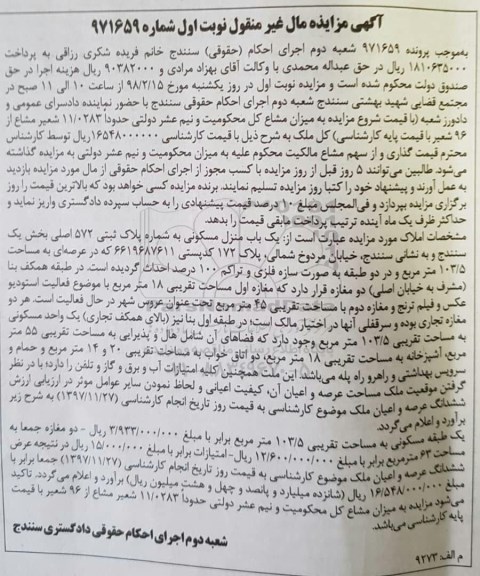 آگهی مزایده مال غیر منقول نوبت اول شماره ۹۷۱۶۵۹
به‌موجب پرونده ۹۷۱۶۵۹ شعبه دوم اجرای احکام (حقوقی) سنندج خانم فریده شکری رزاقی به پرداخت
۱۸۱۰۶۳۵۰۰۰ ریال در حق عبداله محمدی با وکالت آقای بهزاد مرادی و ۹۰۳۸۲۰۰۰ ریال هزینه اجرا در حق
صندوق دولت محکوم شده است و مزایده نوبت اول در روز یکشنبه مورخ ۹۸/۲/۱۵ از ساعت ۱۰ الی ۱۱ صبح در
مجتمع قضایی شهید بهشتی سنندج شعبه دوم اجرای احکام حقوقی سنندج با حضور نماینده دادسرای عمومی و
دادورز شعبه (با قیمت شروع مزایده به میزان مشاع کل محکومیت و نیم عشر دولتی حدوداً ۱۱/۰۲۸۳ شعیر مشاع از
۹۶ شعیر با قیمت پایه کارشناسی) کل ملک به شرح ذیل با قیمت کارشناسی ۱۶۵۴۸۰۰۰۰۰۰ ریال توسط کارشناس
محترم قیمت گذاری و از سهم مشاع مالکیت محکوم علیه به میزان محکومیت و نیم عشر دولتی به مزایده گذاشته
می‌شود. طالبین می‌توانند ۵ روز قبل از روز مزایده با کسب مجوز از اجرای احکام حقوقی از مال مورد مزایده بازدید
به عمل آورند و پیشنهاد خود را کتبا روز مزایده تسلیم نمایند. برنده مزایده کسی خواهد بود که بالاترین قیمت را روز
برگزاری مزایده بپردازد و فی‌المجلس مبلغ ۱۰ درصد قیمت پیشنهادی را به حساب سپرده دادگستری واریز نماید و
حداکثر ظرف یک ماه آینده ترتیب پرداخت مابقی قیمت را بدهد.
مشخصات املاک مورد مزایده عبارت است از: یک باب منزل مسکونی به شماره پلاک ثبتی ۵۷۲ اصلی بخش یک
سنندج و به نشانی سنندج، خیابان مردوخ شمالی، پلاک ۱۷۲ کدپستی ۶۶۱۹۶۸۷۶۱۱ که در عرصه‌ای به مساحت
۱۰۳/۵ متر مربع و در دو طبقه به صورت سازه فلزی و تراکم ۱۰۰ درصد احداث گردیده است. در طبقه همکف بنا
(مشرف به خیابان اصلی) دو مغازه قرار دارد که مغازه اول مساحت تقریبی ۱۸ متر مربع با موضوع فعالیت استودیو
عکس و فیلم ترنج و مغازه دوم با مساحت تقریبی ۴۵ متر مربع تحت عنوان عروس شهر در حال فعالیت است. هر دو
مغازه تجاری بوده و سرقفلی آنها در اختیار مالک است؛ در طبقه اول بنا نیز (بالای همکف تجاری) یک واحد مسکونی
به مساحت تقریبی ۱۰۳/۵ متر مربع وجود دارد که فضاهای آن شامل هال و پذیرایی به مساحت تقریبی ۵۵ متر
مربع، آشپزخانه به مساحت تقریبی ۱۸ متر مربع، دو اتاق خواب به مساحت تقریبی ۲۰ و ۱۴ متر مربع و حمام و
سرویس بهداشتی و راهرو راه پله می‌باشد. این ملک همچنین کلیه امتیازات آب و برق و گاز و تلفن را دارد؛ با در نظر
گرفتن موقعیت ملک مساحت عرصه و اعیان آن، کیفیت اعیانی و لحاظ نمودن سایر عوامل موثر در ارزیابی ارزش
ششدانگ عرصه و اعیان ملک موضوع کارشناسی به قیمت روز تاریخ انجام کارشناسی (۱۳۹۷/۱۱/۲۷) به شرح زیر
برآورد و اعلام می‌گردد.
یک طبقه مسکونی به مساحت تقریبی ۱۰۳/۵ متر مربع برابر با مبلغ ۳/۹۳۳/۰۰۰/۰۰۰ ریال - دو مغازه جمعا به
مساحت ۶۳ مترمربع برابر با مبلغ ۱۲/۶۰۰/۰۰۰/۰۰۰ ریال-امتیازات برابر با مبلغ ۱۵/۰۰۰/۰۰۰ ریال در نتیجه عرض
ششدانگ عرصه و اعیان ملک موضوع کارشناسی به قیمت روز تاریخ انجام کارشناسی (۱۳۹۷/۱۱/۲۷) جمعا برابر با
مبلغ ۱۶/۵۴۸/۰۰۰/۰۰۰ ریال (شانزده میلیارد و پانصد و چهل و هشت میلیون ریال) برآورد و اعلام می‌گردد. تاکید
می‌شود مزایده به میزان مشاع کل محکومیت و نیم عشر دولتی حدوداً ۱۱/۰۲۸۳ شعیر مشاع از ۹۶ شعیر با قیمت
پایه کارشناسی می‌باشد.
شعبه دوم اجرای احکام حقوقی دادگستری سنندج
م الف: ۹۲۷۳